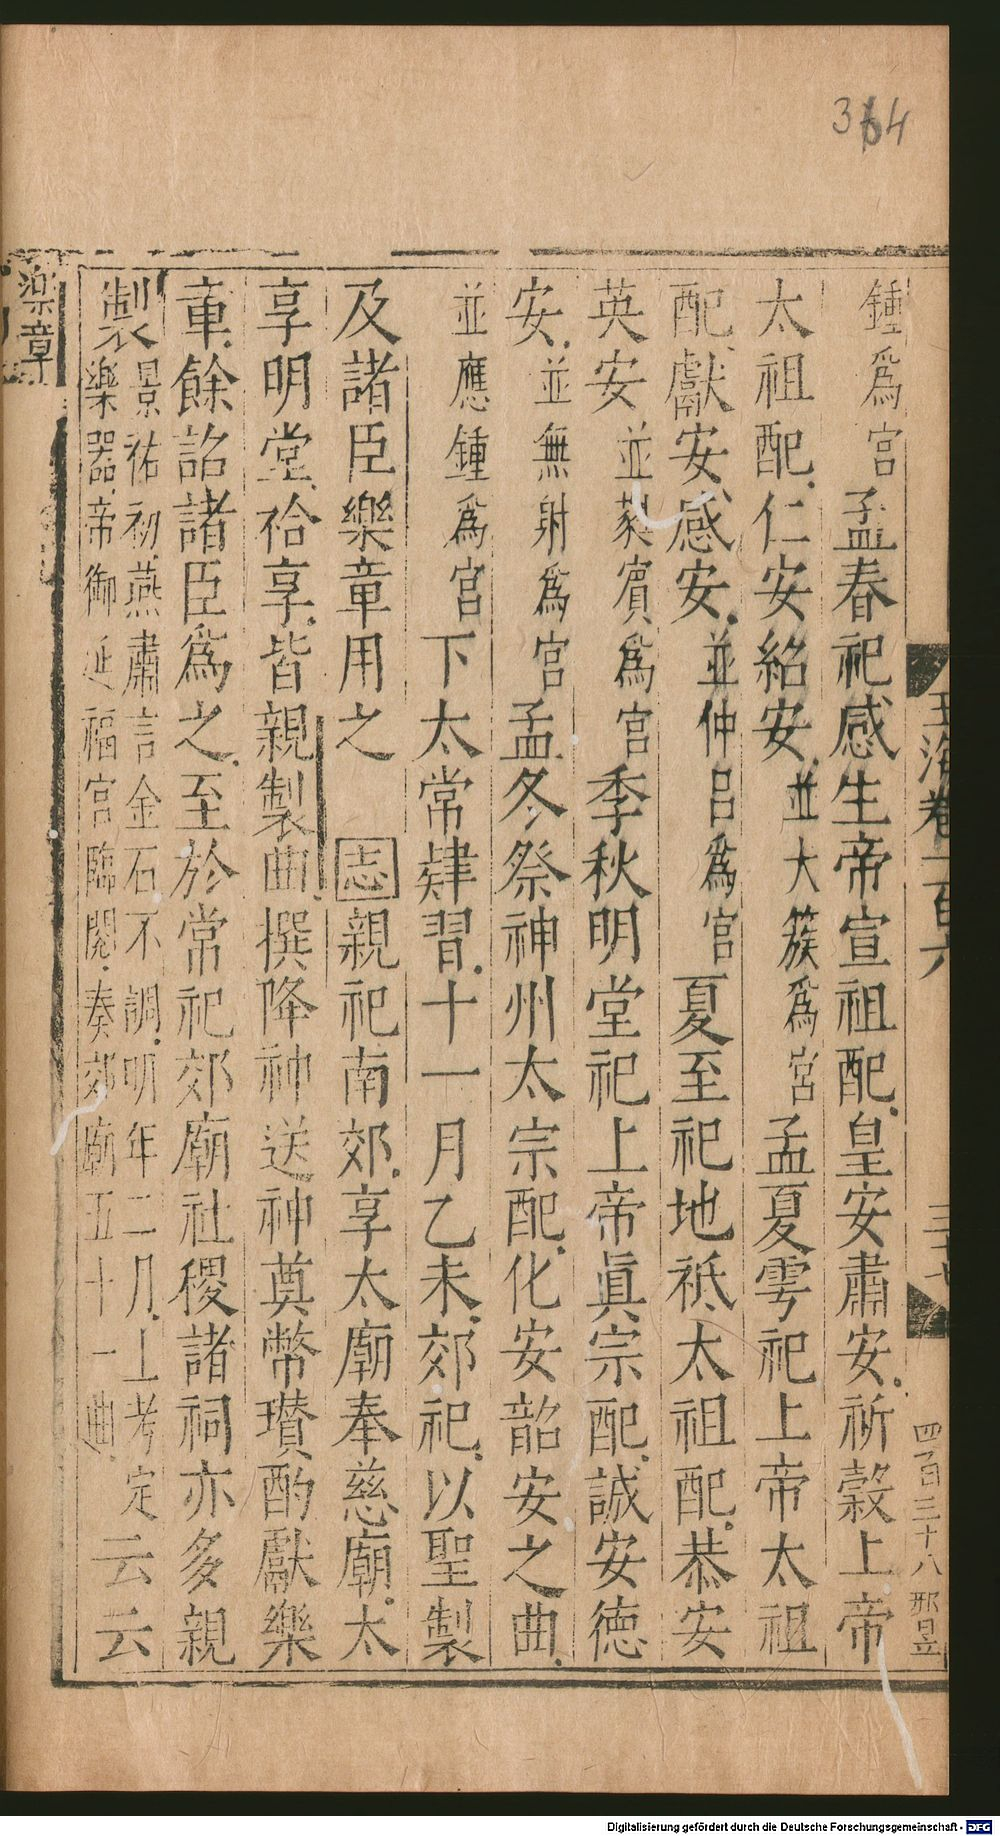 364
玉海卷一百六
三十七
四百三十八
邢昱
鍾爲宮孟春祀感生帝宣祖配皇安肅安祈穀上帝
太祖配仁安紹安並大簇爲宮孟夏雩祀上帝太祖
配獻安感安並仲呂爲宮夏至祀地祗太祖配恭安
英安並蕤賓爲宮季秋明堂祀上帝眞宗配誠安德
安並無射爲宮孟冬祭神州太宗配化安韶安之曲
並應鍾爲宮下太常肄習十一月乙未郊祀以聖製
及諸臣樂章用之志親祀南郊享太廟奉慈廟太
享明堂祫享皆親製曲撰降神送神奠幣瓚酌獻樂
章餘詔諸臣爲之至於常祀郊廟社稷諸祠亦多親
製景祐初燕肅言金石不調明年二月上考定
樂器帝御延福宮臨閱奏郊廟五十一曲云云
樂章
Digitalisierung gefördert durch die Deutsche Forschungsgemeinschaft - DFG